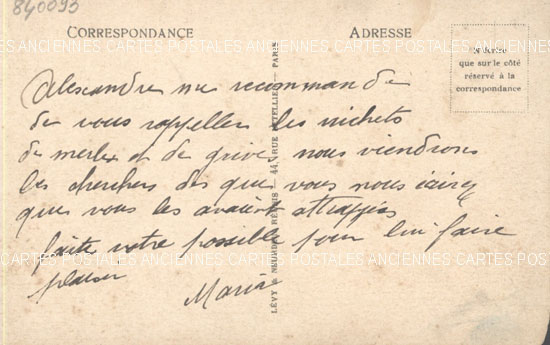 840093
CORRESPONDANCE
ADRESSE
N'écrire
que sur le côté
réservé à la
correspondance
CARTES POSTALES ANCIENNES CARTES POSTALES ANCIENNES CARTES POSTALES
Alexandre me recommande
de vous rappeller les nichets
de merles et de grive nous viendrons
les cherchers des que vous nous écirez
que vous les avaient attrappés
faite votre possible pour lui faire
plaisir
Maria
LÉVY & NEURDEIN RÉUNIS — 44, RUE LETELLIER — PARIS
CARTES POSTALES ANCIENNES CARTES POSTALES ANCIENNES CARTES POSTALES